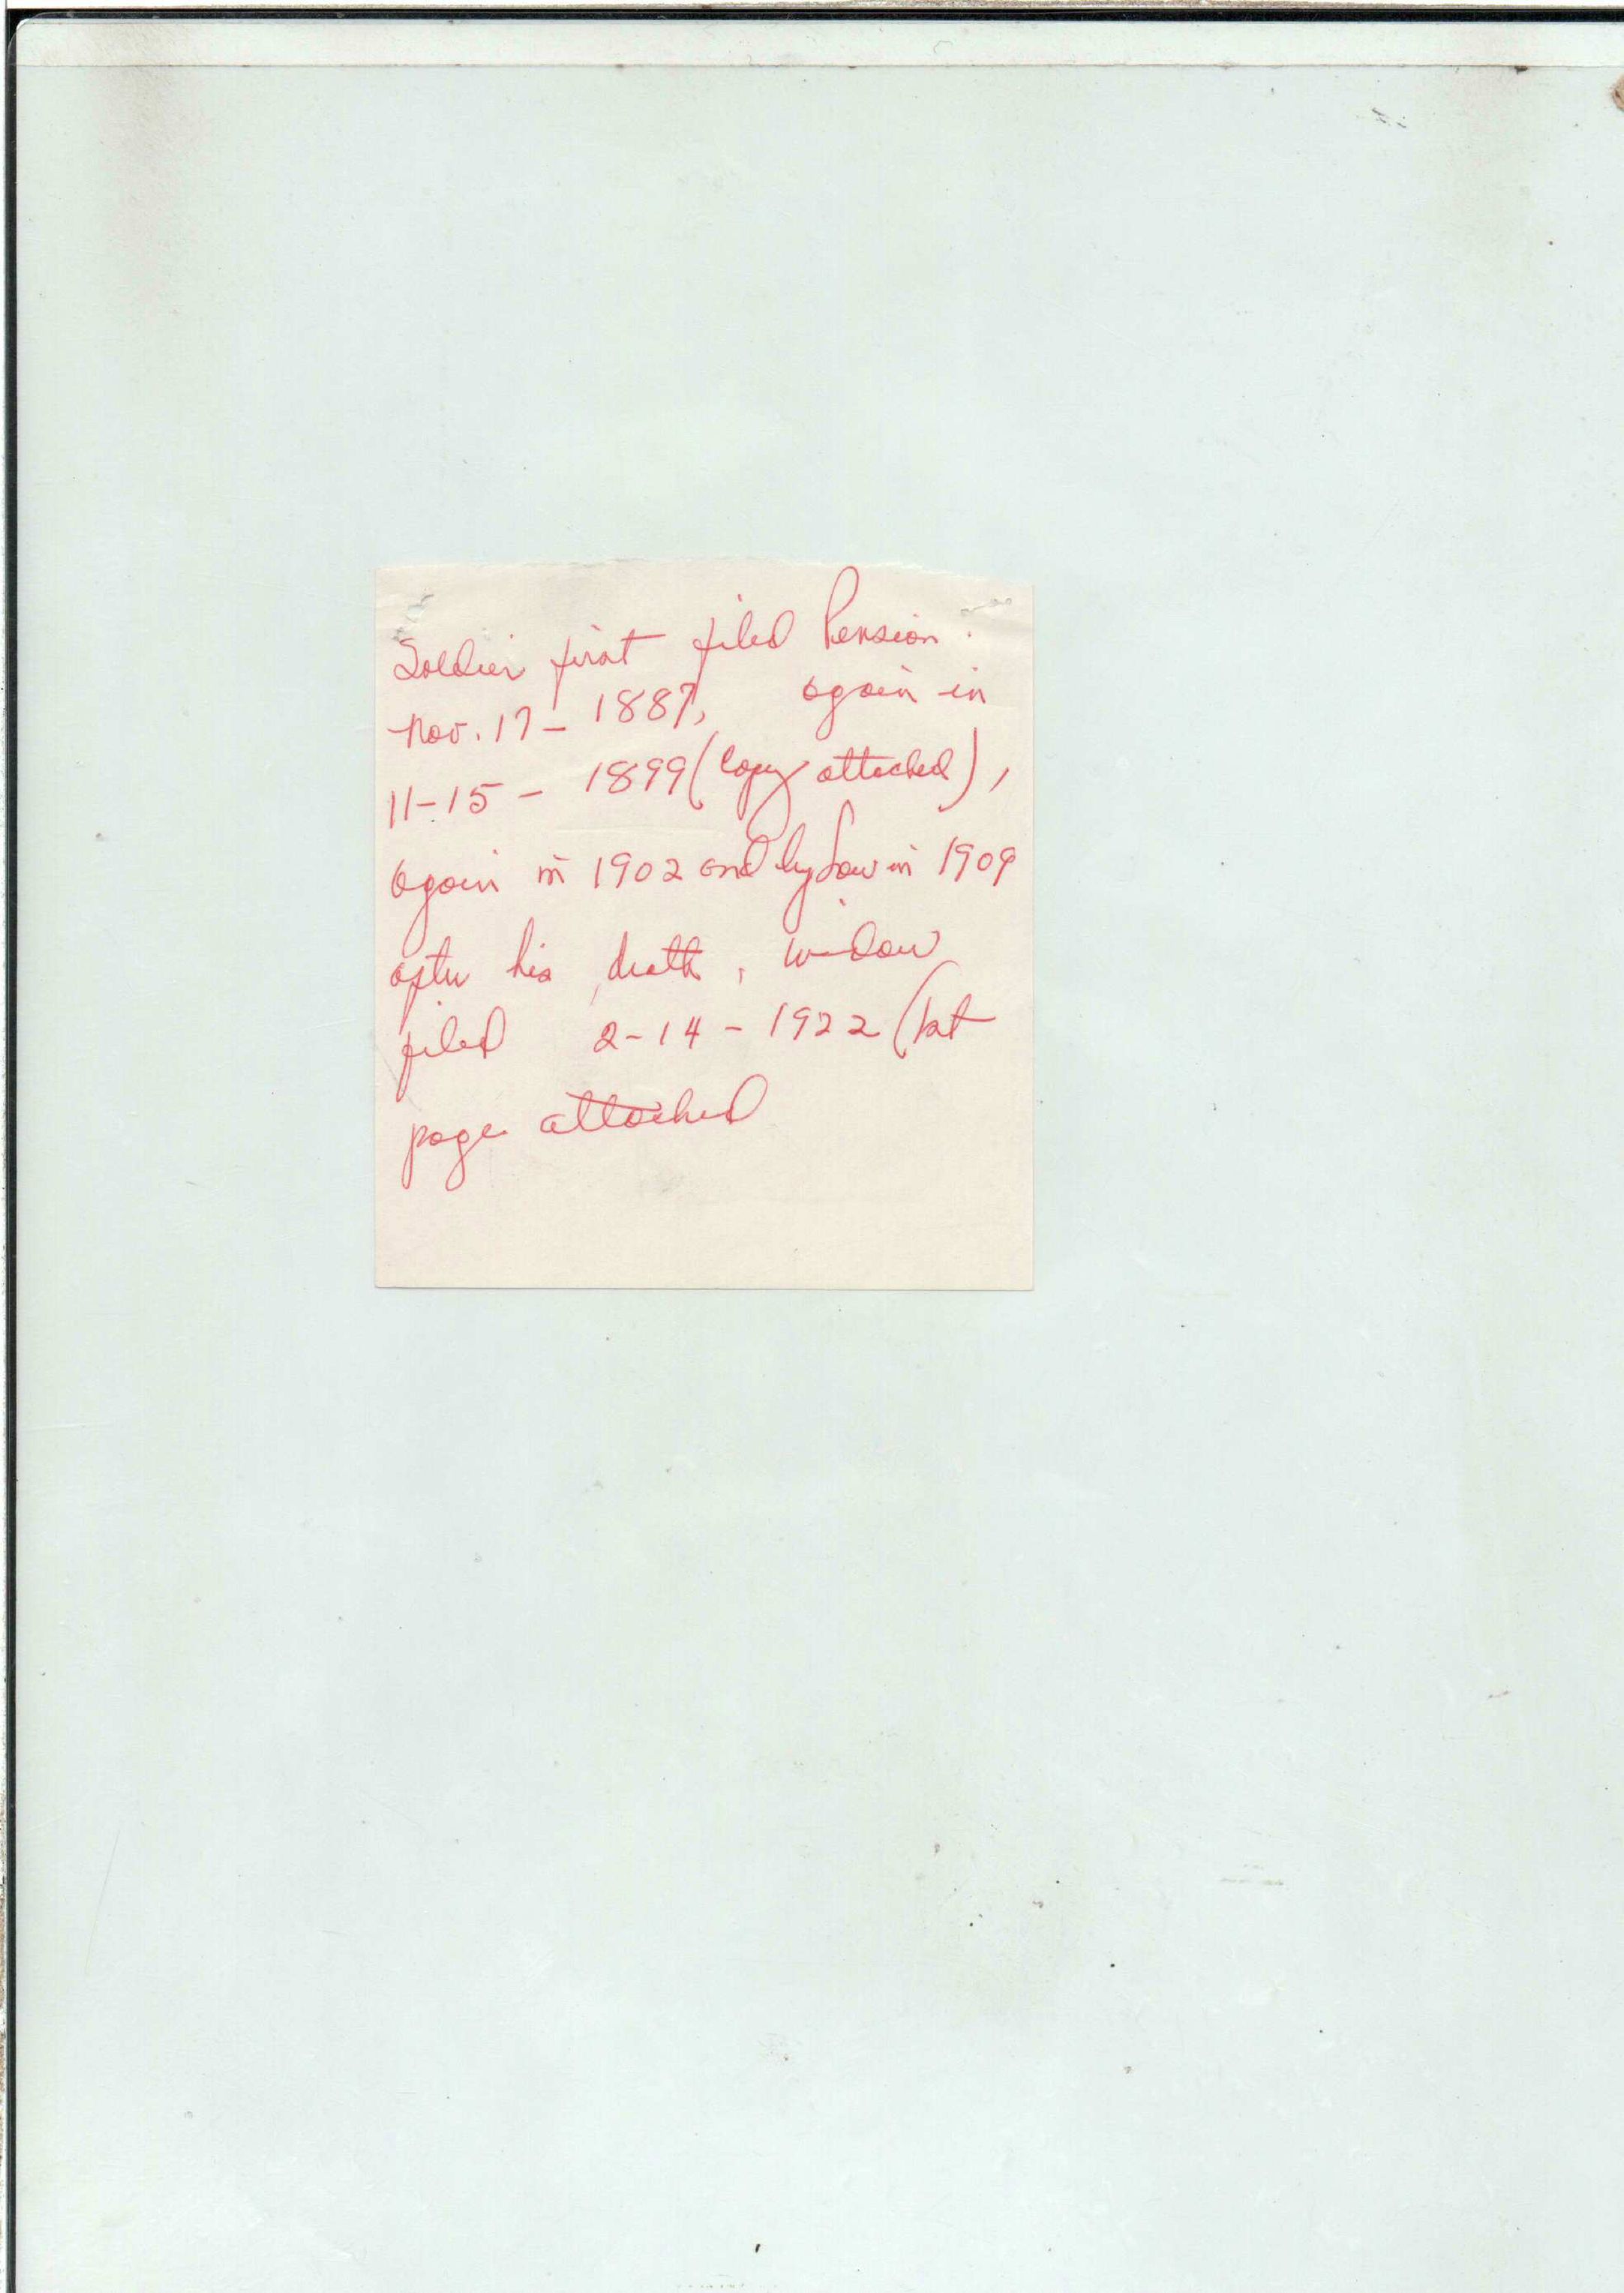 Soldier first filed Pension
Nov. 17 - 1887, again in
11-15 - 1899 (Copy attached),
again in 1902 and by Law in 1909
after his death, widow
filed 2-14-1922 (1st
page attached